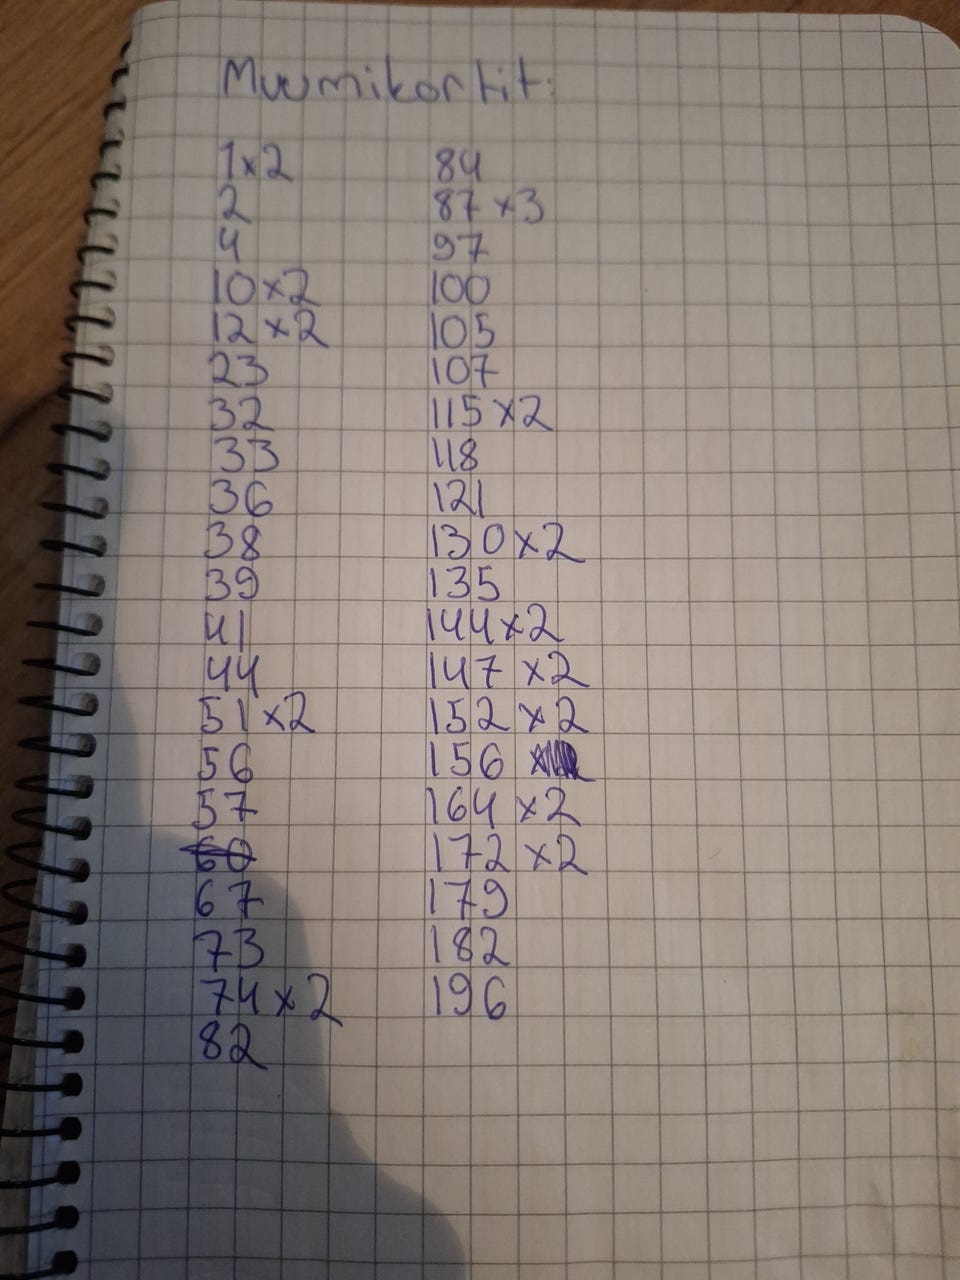 Muumikortit:
1x2
2
4
10x2
12 x2
23
32
33
36
38
39
41
44
51x2
56
57
60
67
73
74x2
82
84
87 x3
97
100
105
107
115x2
118
121
130x2
135
144x2
147 x2
152 x2
156
164 x2
172 x2
179
182
196